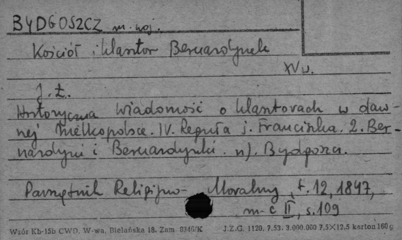 BYDGOSZCZ m. woj.
Kościół i klasztor Bernardynek
XV w.
J. Ł.
Historyczna wiadomość o klasztorach w daw-
nej Wielkopolsce. IV. Reguła ś. Franciszka. 2. Ber-
nardyni i Bernardynki. w Bydgoszcz.
Pamiętnik Religijno-Moralny, t. 12, 1847,
m-c II, s. 109
Wzór Kb-15b CWD. W-wa, Bielańska 18. Zam 8840/K J.Z.G. 1120. 7.53. 3.000.000 7.5×12.5 karton 160 g